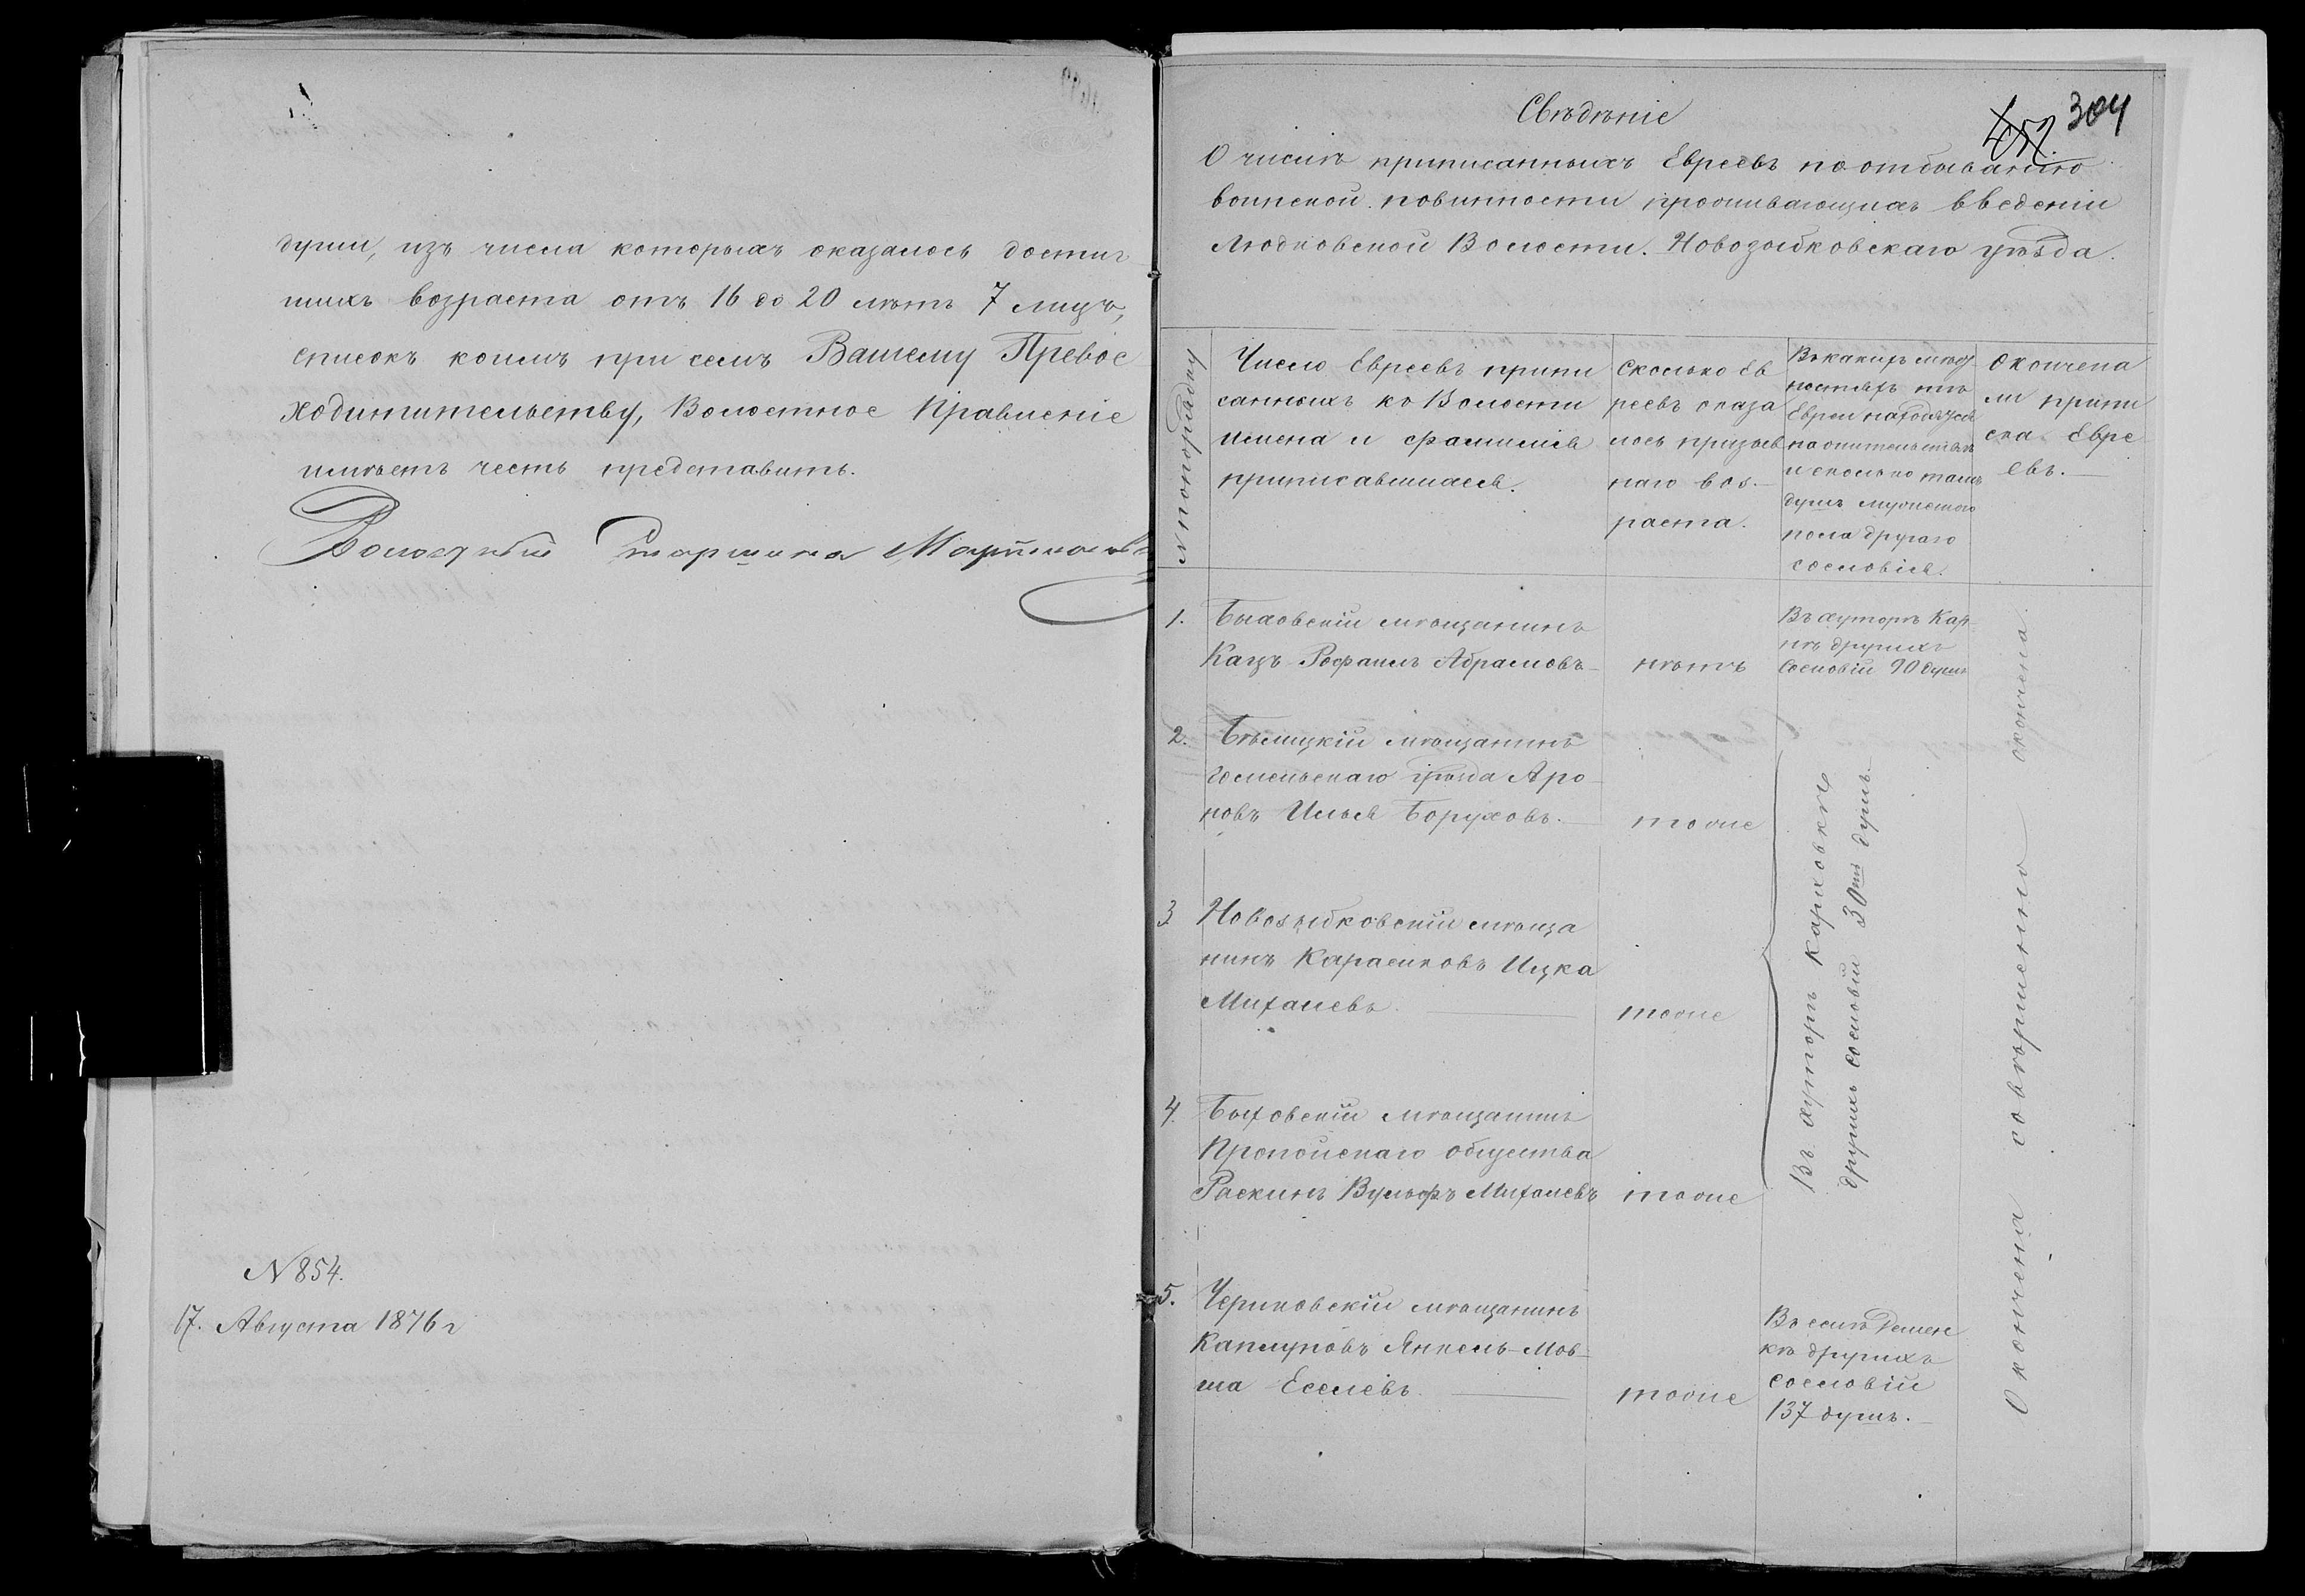 души, изъ числа которыхъ оказалось достиг
шихъ возраста отъ 16 до 20 лѣтъ 7 лицъ,
списокъ коимъ при семъ Вашему Превос
ходитительству, Волостное Правленіе
имѣетъ честь представить.
Волостный Старшина
N 854.
17. Августа 1876 г
304
Свѣдѣніе
О числѣ приписанныхъ Евреевъ по отбыванію
воинской повинности проживающихъ введеніи
Людковской Волости. Новозыбковскаго уѣзда.
N попорядку
Число Евреевъ припи
санныхъ къ Волости
имена и фамилія
приписавшися.
Сколько Ев
реевъ оказа
лось призыв
наго воз-
раста.
Въ какихъ мѣст
ностяхъ
Евреи находятся
на жительствѣ
и сколько тамъ
душъ мужского
пола другаго
сословія.
Окончена
ли припи
ска Евре
евъ.
1. Быховскій мѣщанинъ
Кацъ Рофаилъ Абрамовъ
нѣтъ
Въ хуторѣ Кар
другихъ
Сословій 90 душъ
2. Бѣлицкій мѣщанинъ
Гомельскаго уѣзда Аро-
новъ Илья Боруховъ.
тоже
3 Новозыбковскій мѣща
нинъ Карасиковъ Ицка
Михалевъ.
тоже
4. Быховскій мѣщанинъ
Пропойскаго общества
Раскинъ Вульфъ Михалевъ
тоже
Въ хуторѣ Кариховкѣ
другихъ сословій 30ть душъ.
5. Чериковскій мѣщанинъ
Каплуновъ Янкель-Мов-
ша Еселевъ.
тоже
Въ селѣ Демен
кѣ другихъ
сословій
137 душъ.
Окончена совѣршенно окончена.